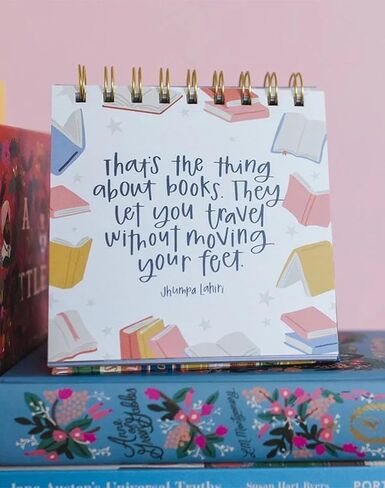 That's the thing
about books. They
let you travel
without moving
your feet.
Jhumpa Lahiri
A
Anne of Green Gables
L.M. Montgomery
Jane Austen's Universal Truths
Susan Hart-Byers
POR